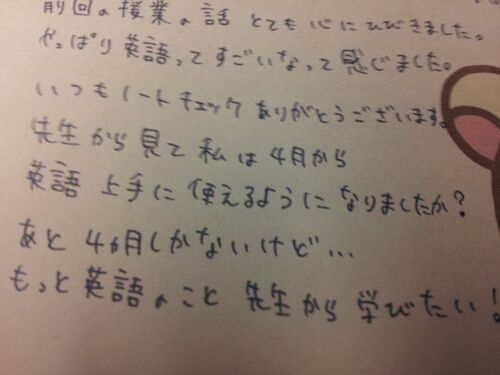 前回の授業の話 とても心にひびきました。
やっぱり英語ってすごいなって感じました。
いつもノートチェック ありがとうございます。
先生から見て私は4月から
英語上手に使えるようになりましたか?
あと4ヵ月しかないけど…
もっと英語のこと先生から学びたい!